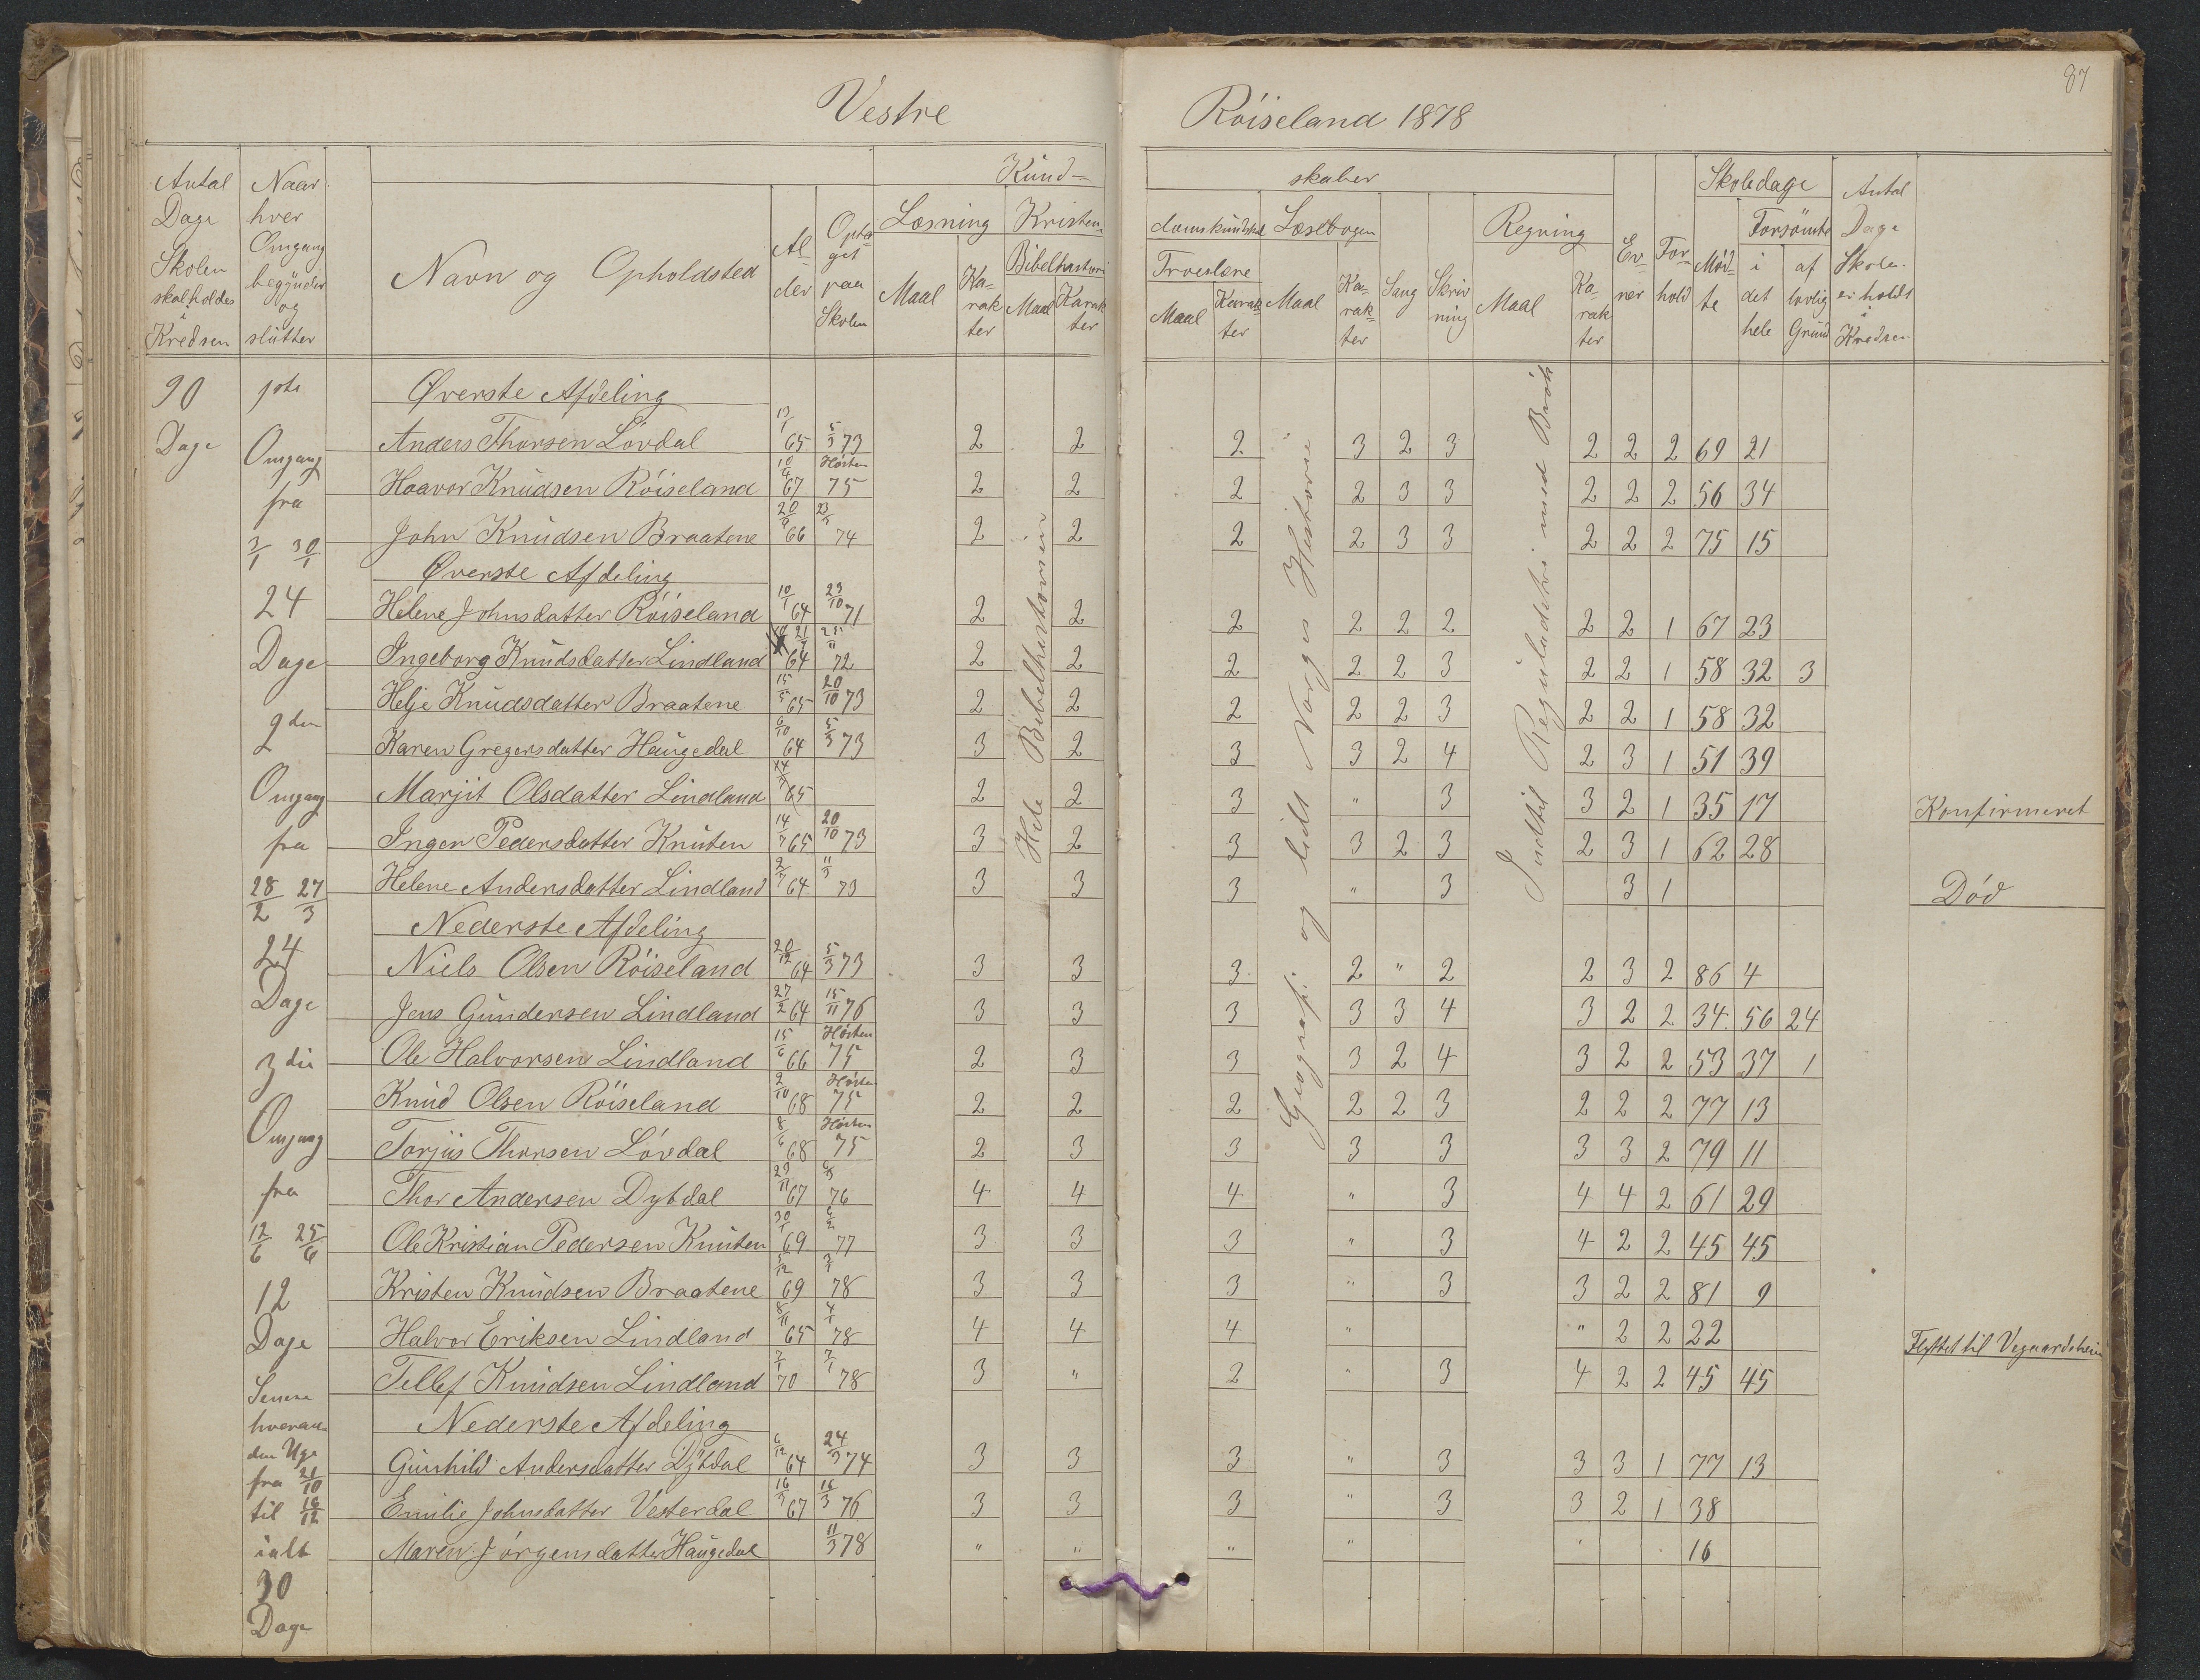 87
Vestre Röiseland 1878
Antal Dage Skolen skal holdes i Kredsen
Naar hver Omgang begÿnder og slutter
Navn og Opholdsted
Alder
Optaget paa Skolen
Kund-skaber
Læsning
Maal
Karakter
Kristendomskundskab
Bibelhistorie
Maal
Karakter
Troeslære
Maal
Karakter
Læsebogen
Maal
Karakter
Sang
Skrivning
Regning
Maal
Karakter
Evner
Forhold
Skoledage
Mødte
Forsömte
i det hele
af lovlig Grund
Antal Dage Skolen er holdt i Kredsen
90 Dage
1ste Omgang fra 3/1 30/1
24 Dage
2den Omgang fra 28/2 27/3
24 Dage
3die Omgang fra 12/6 25/6
12 Dage
Senere hveranden Uge fra 21/10 til 16/12 ialt 30 Dage
Hele Bibelhistorien
Geografi og lidt Norges Historie
Indtil Reguladetri med Brök
Øverste Afdeling
Anders Thorsen Lövdal 13/1 65 5/3 73 2 2 2 3 2 3 2 2 2 69 21
Haavor Knudsen Röiseland 10/4 67 Hösten 75 2 2 2 2 3 3 2 2 2 56 34
John Knudsen Braatene 20/9 66 74 2 2 2 2 3 3 2 2 2 75 15
Øverste Afdeling
Helene Johnsdatter Röiseland 10/1 64 23/10 71 2 2 2 2 2 2 2 2 1 67 23
Ingeborg Knudsdatter Lindland 64 72 2 2 2 2 2 3 2 2 1 58 32 3
Helje Knudsdatter Braatene 15/5 65 20/10 73 2 2 2 2 2 3 2 2 1 58 32
Karen Gregersdatter Haugedal 6/10 64 5/3 73 3 2 3 3 2 4 2 3 1 51 39
Marjit Olsdatter Lindland 65 2 2 3 " 3 3 2 1 35 17 Konfirmeret
Inger Pedersdatter Knuten 14/7 65 20/10 73 3 2 3 3 2 3 2 3 1 62 28
Helene Andersdatter Lindland 2/7 64 11/3 73 3 3 3 " 3 3 1 Död
Nederste Afdeling
Niels Olsen Röiseland 20/12 64 5/3 73 3 3 3 2 " 2 2 3 2 86 4
Jens Gundersen Lindland 27/2 64 15/11 76 3 3 3 3 3 4 3 2 2 34 56 24
Ole Halvorsen Lindland 15/6 66 Hösten 75 2 3 3 3 2 4 3 2 2 53 37 1
Knud Olsen Röiseland 2/10 68 Hösten 75 2 2 2 2 2 3 2 2 2 77 13
Torjus Thorsen Lövdal 8/6 68 Hösten 75 2 3 3 3 3 3 3 2 79 11
Thor Andersen Dybdal 29/11 67 76 4 4 4 " 3 4 4 2 61 29
Ole Kristian Pedersen Knuten 69 77 3 3 3 " 3 4 2 2 45 45
Kristen Knudsen Braatene 69 78 3 3 3 " 3 3 2 2 81 9
Halvor Eriksen Lindland 65 78 4 4 4 " " 2 2 22 Flyttet til Vegaardsheien
Tellef Knudsen Lindland 70 78 3 " 2 " 3 4 2 2 45 45
Nederste Afdeling
Gunhild Andersdatter Dybdal 6/12 64 24/3 74 3 3 3 " 3 3 3 1 77 13
Emilie Johnsdatter Vesterdal 67 16/3 76 3 3 3 " 3 3 2 1 38
Maren Jörgensdatter Haugedal 11/3 78 " " " " 16